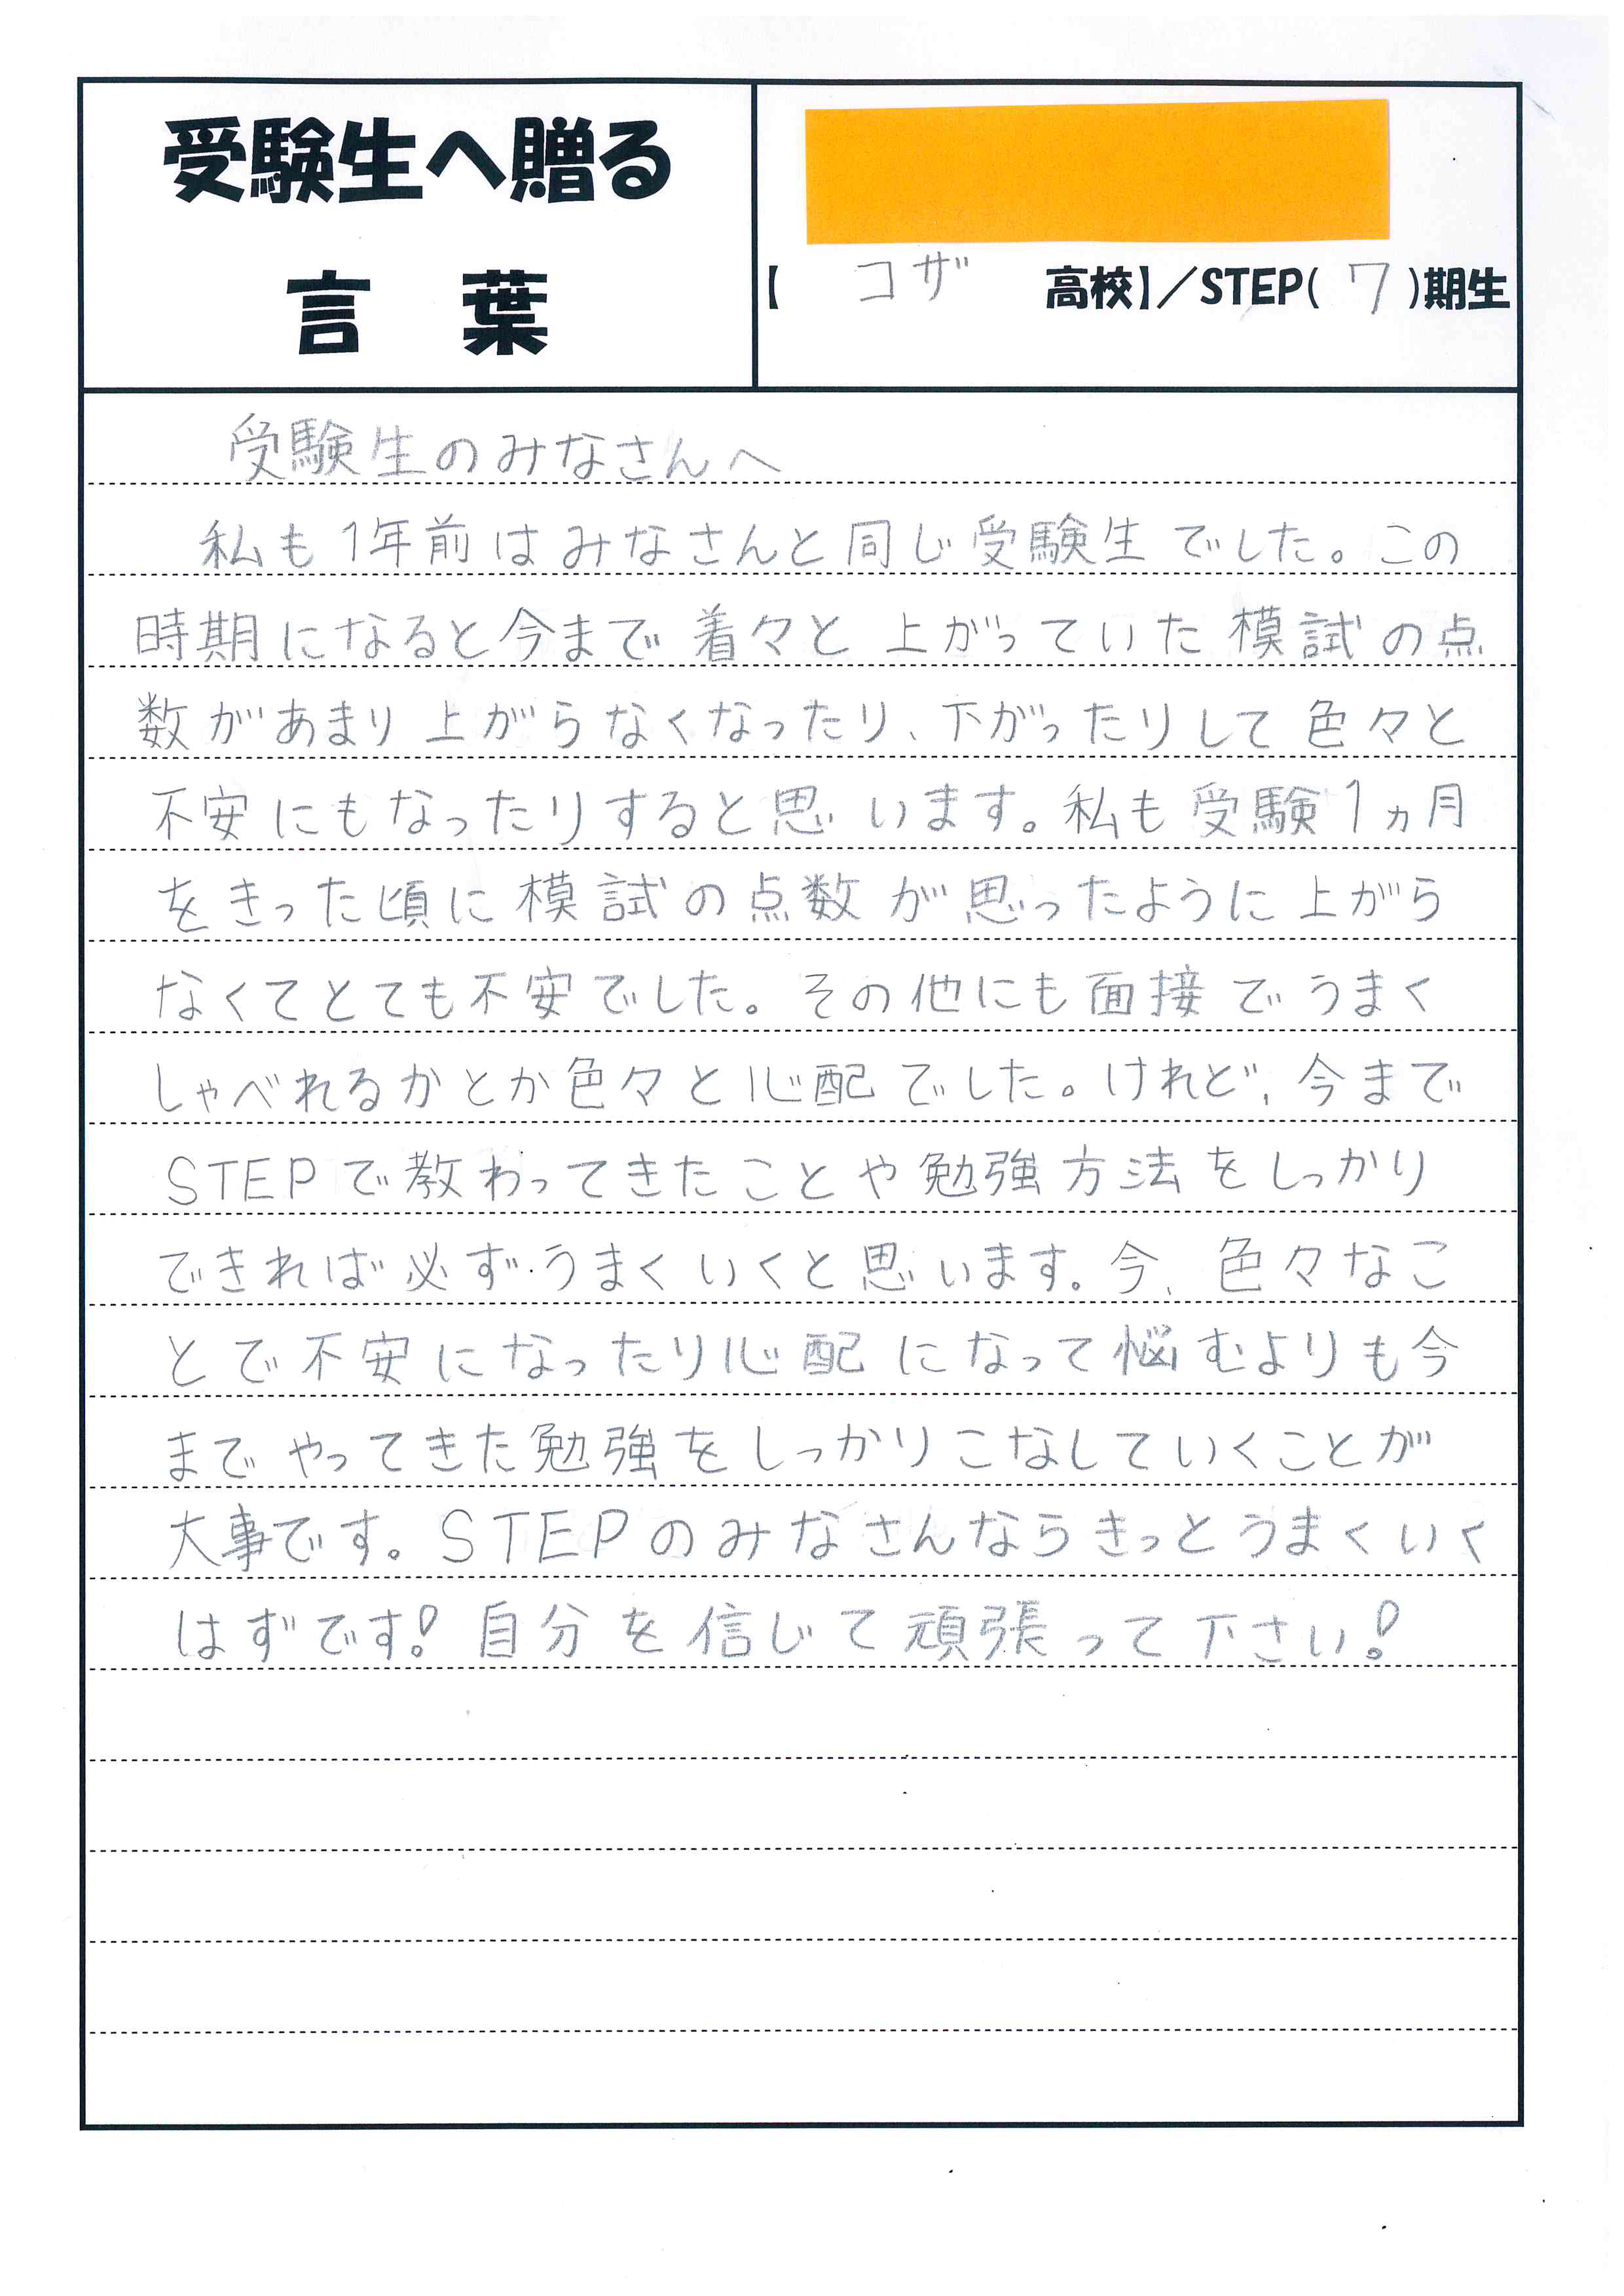 受験生へ贈る
言葉
【コザ高校】／STEP(7)期生
受験生のみなさんへ
私も1年前はみなさんと同じ受験生でした。この
時期になると今まで着々と上がっていた模試の点
数があまり上がらなくなったり、下がったりして色々と
不安にもなったりすると思います。私も受験1ヵ月
をきった頃に模試の点数が思ったように上がら
なくてとても不安でした。その他にも面接でうまく
しゃべれるかとか色々と心配でした。けれど、今まで
STEPで教わってきたことや勉強方法をしっかり
できれば必ずうまくいくと思います。今、色々なこ
とで不安になったり心配になって悩むよりも今
までやってきた勉強をしっかりこなしていくことが
大事です。STEPのみなさんならきっとうまくいく
はずです!自分を信じて頑張って下さい!